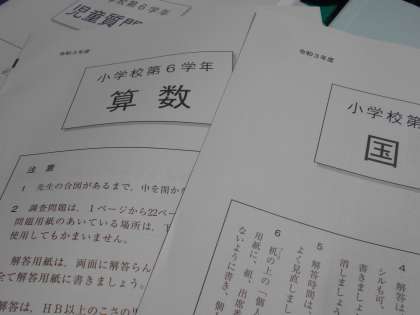 小学校第6学年
児童質問
令和3年度
小学校第6学年
算数
注意
1 先生の合図があるまで，中を開か
2 調査問題は，1ページから22ペー
問題用紙のあいている場所は，下
使用してもかまいません。
解答用紙は，両面に解答らん
全て解答用紙に書きましょう。
解答は，HB以上のこさの
令和3年度
小学校第
国
4 解答は
シルも可，
書きまし
消しましょ
5 解答時間は，
よく見直しまし
6 机の上の「個人
用紙に，組，出席
ないように書き，個